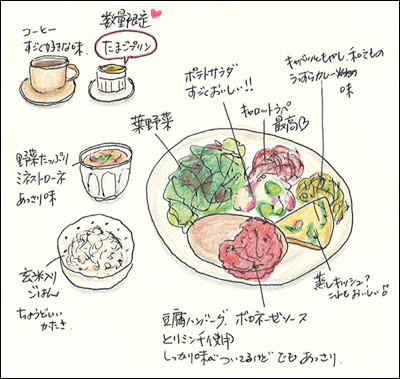 数量限定
コーヒー
すごく好きな味。
たまごプリン
ポテトサラダ
すごくおいしい!!
キャベツともやし、和てもの
うっすらカレー
味
キャロットラペ
最高
葉野菜
野菜たっぷり
ミネストローネ
あっさり味
玄米入り
ごはん
ちょうどいい
かたさ。
蒸しキッシュ?
これもおいしい
豆腐ハンバーグ、ボロネーゼソース
とりミンチ使用
しっかり味がついてるけど でも あっさり。